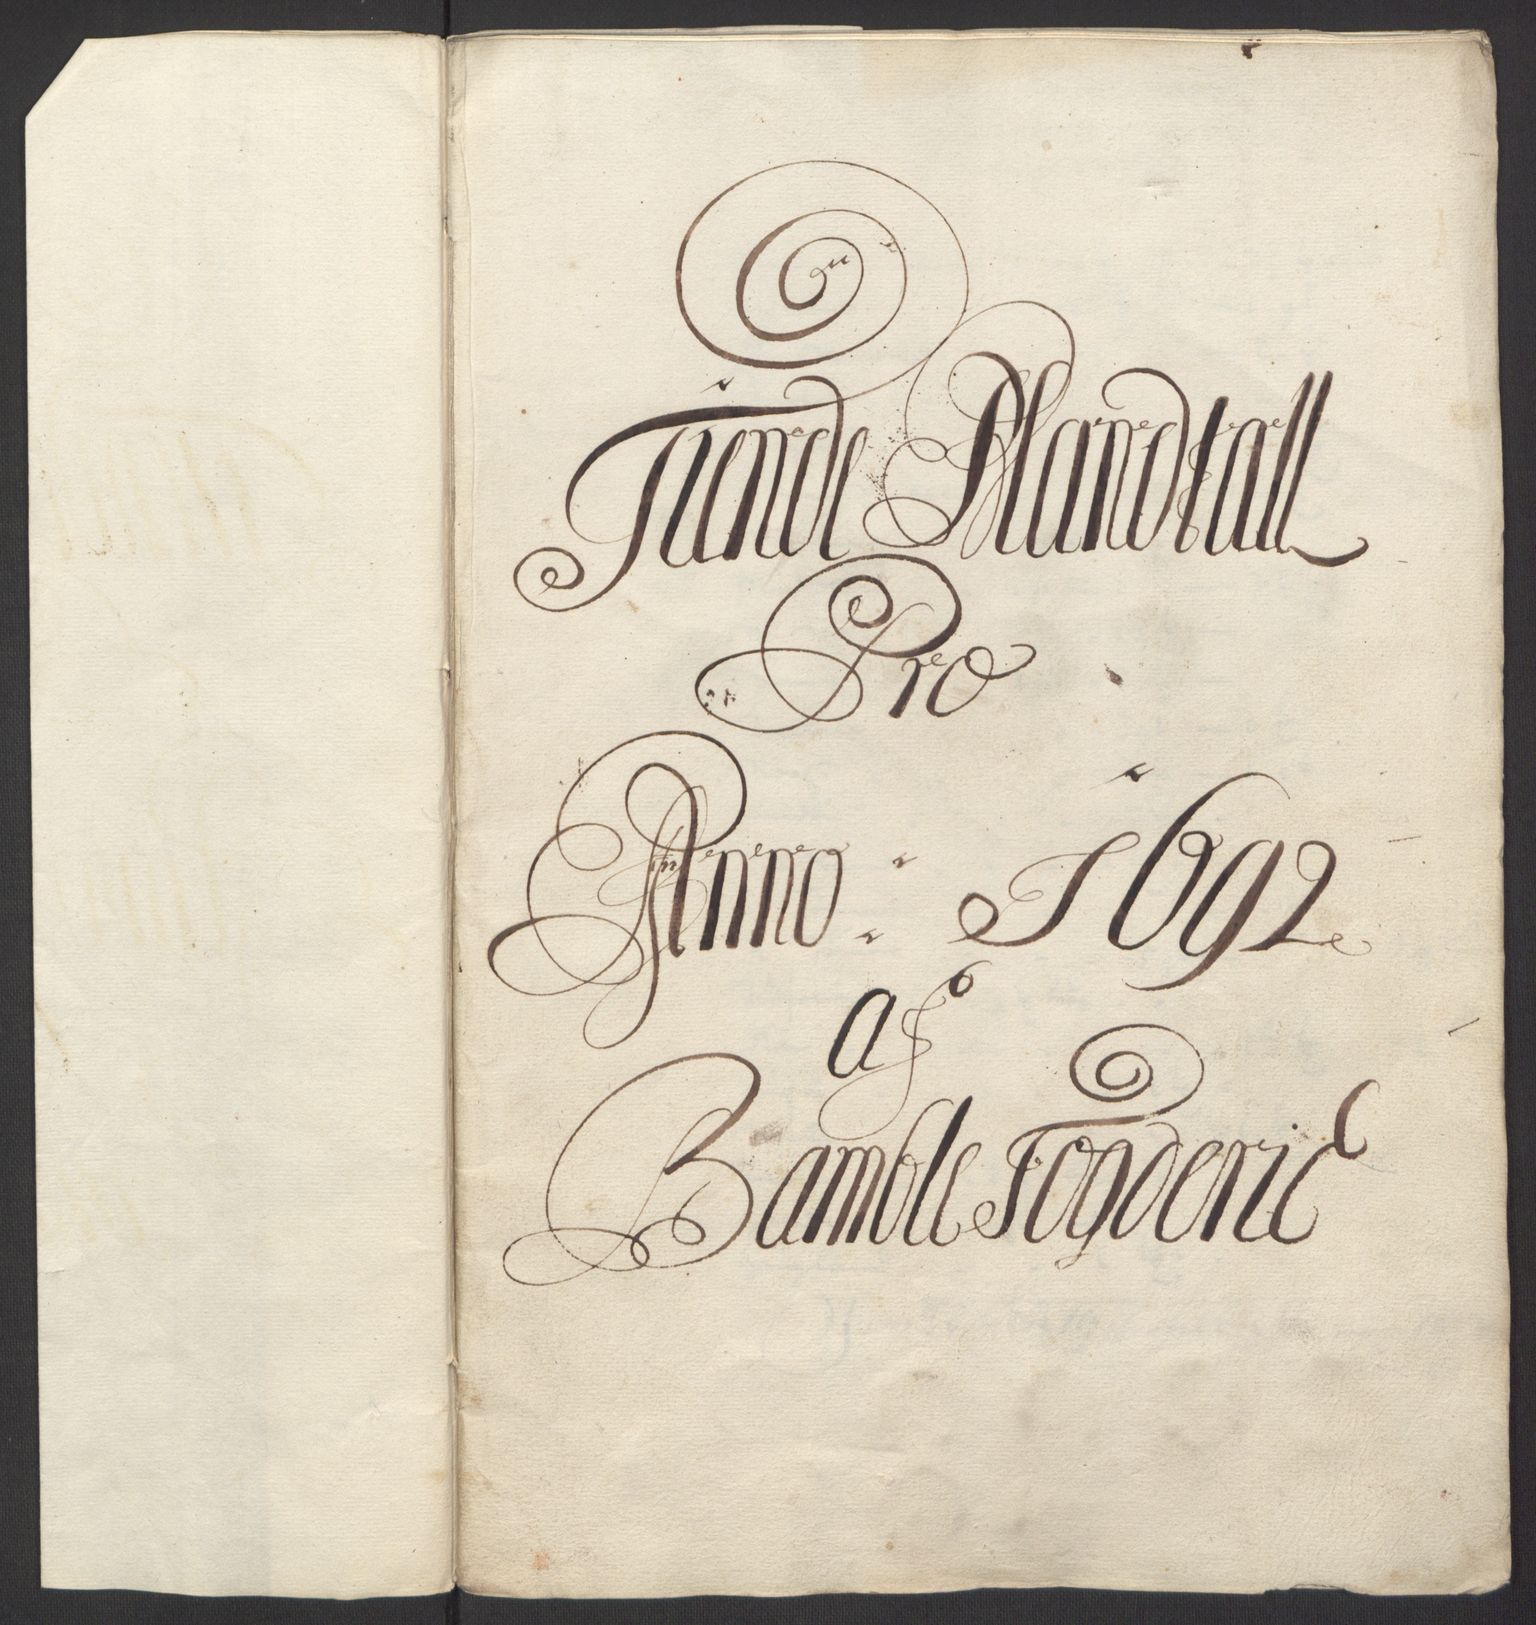 Tiende Mandtall
Pro
Anno : 1692
af
Bamble Fogderie